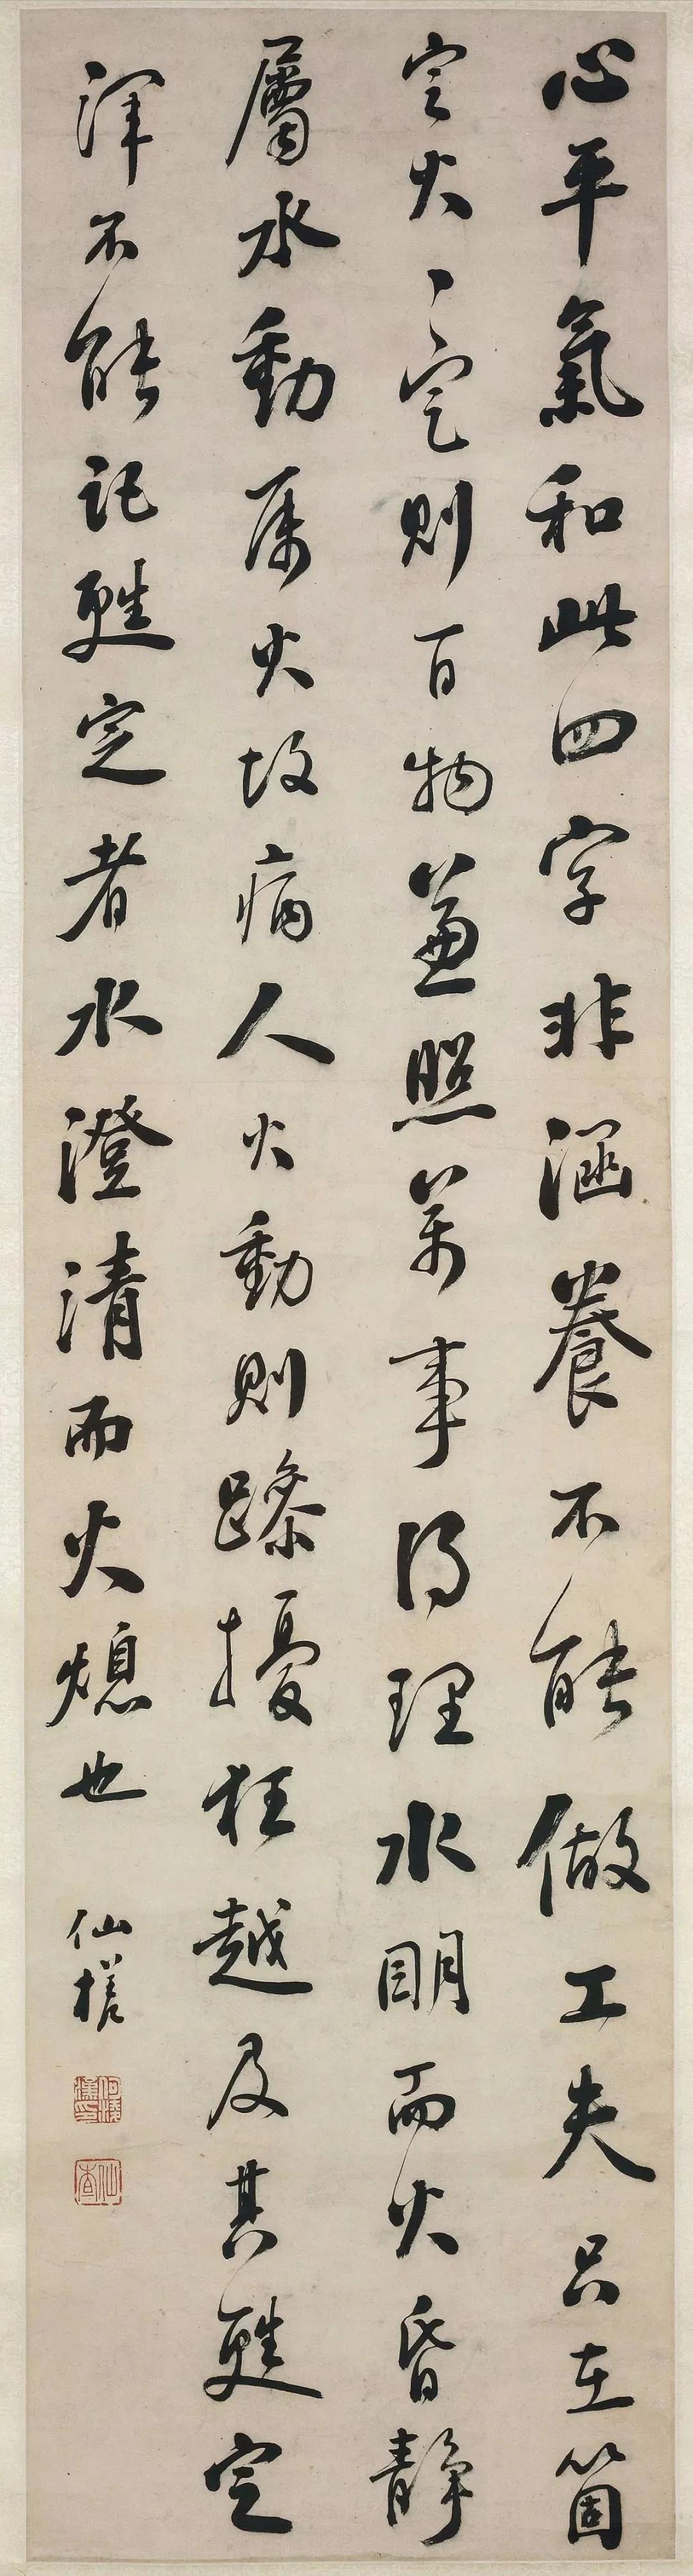 心平氣和此四字非涵養不能做工夫只在箇
定火〻定則百物兼照萬事得理水明而火昏静
屬水動属火故病人火動則躁擾狂越及其甦定
渾不能記甦定者水澄清而火熄也
仙槎